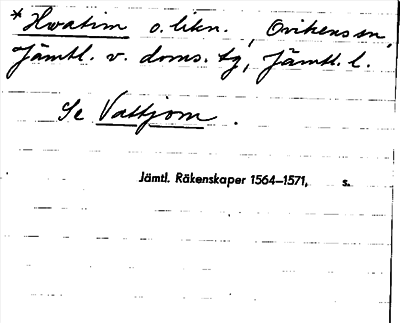 *Hvatim o. likn., Ovikens sn,
Jämtl. v. doms. tg, Jämtl. l.
Se Vattjom.
Jämtl. Räkenskaper 1564–1571, s.